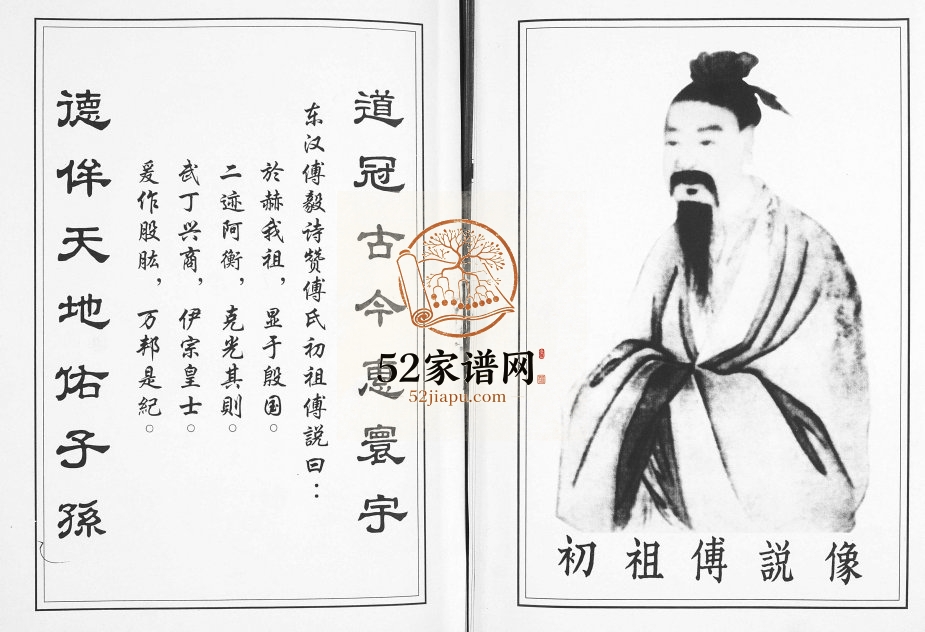 道冠古今惠寰宇
东汉傅毅诗赞傅氏初祖傅説曰：
於赫我祖，显于殷国。
二迹阿衡，克光其則。
武丁兴商，伊宗皇士。
爰作股肱，万邦是紀。
德侔天地佑子孫
初祖傅説像
52家谱网
52jiapu.com